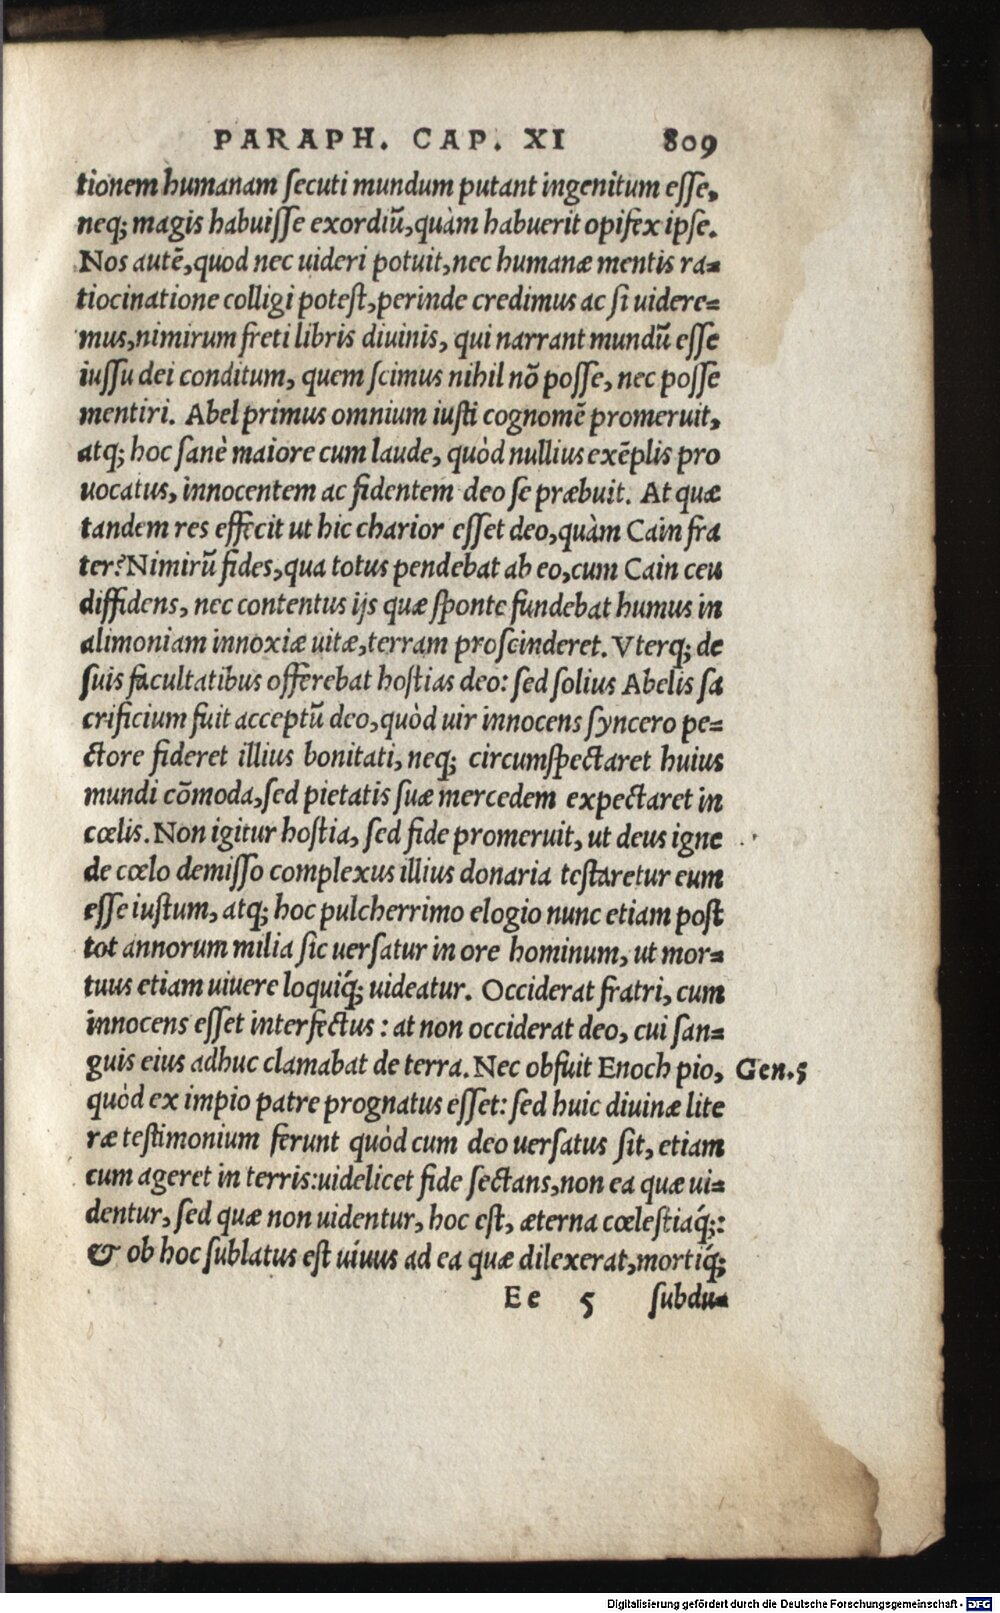 PARAPH. CAP. XI 809
tionem humanam secuti mundum putant ingenitum esse,
neq; magis habuisse exordiũ, quàm habuerit opifex ipse.
Nos autẽ, quod nec uideri potuit, nec humanæ mentis ra=
tiocinatione colligi potest, perinde credimus ac si uidere=
mus, nimirum freti libris diuinis, qui narrant mundũ esse
iussu dei conditum, quem scimus nihil nõ posse, nec posse
mentiri. Abel primus omnium iusti cognomẽ promeruit,
atq; hoc sanè maiore cum laude, quòd nullius exẽplis pro
uocatus, innocentem ac fidentem deo se præbuit. At quæ
tandem res effecit ut hic charior esset deo, quàm Cain fra
ter? Nimirũ fides, qua totus pendebat ab eo, cum Cain ceu
diffidens, nec contentus ijs quæ sponte fundebat humus in
alimoniam innoxiæ uitæ, terram proscinderet. Vterq; de
suis facultatibus offerebat hostias deo: sed solius Abelis sa
crificium fuit acceptũ deo, quòd uir innocens syncero pe=
ctore fideret illius bonitati, neq; circumspectaret huius
mundi cõmoda, sed pietatis suæ mercedem expectaret in
cœlis. Non igitur hostia, sed fide promeruit, ut deus igne
de cœlo demisso complexus illius donaria testaretur eum
esse iustum, atq; hoc pulcherrimo elogio nunc etiam post
tot annorum milia sic uersatur in ore hominum, ut mor=
tuus etiam uiuere loquiq́; uideatur. Occiderat fratri, cum
innocens esset interfectus: at non occiderat deo, cui san=
guis eius adhuc clamabat de terra. Nec obfuit Enoch pio, Gen. 5
quòd ex impio patre prognatus esset: sed huic diuinæ lite
ræ testimonium ferunt quòd cum deo uersatus sit, etiam
cum ageret in terris: uidelicet fide sectans, non ea quæ ui=
dentur, sed quæ non uidentur, hoc est, æterna cœlestiaq́;:
& ob hoc sublatus est uiuus ad ea quæ dilexerat, mortiq́;
Ee 5 subdu=
Digitalisierung gefördert durch die Deutsche Forschungsgemeinschaft - DFG